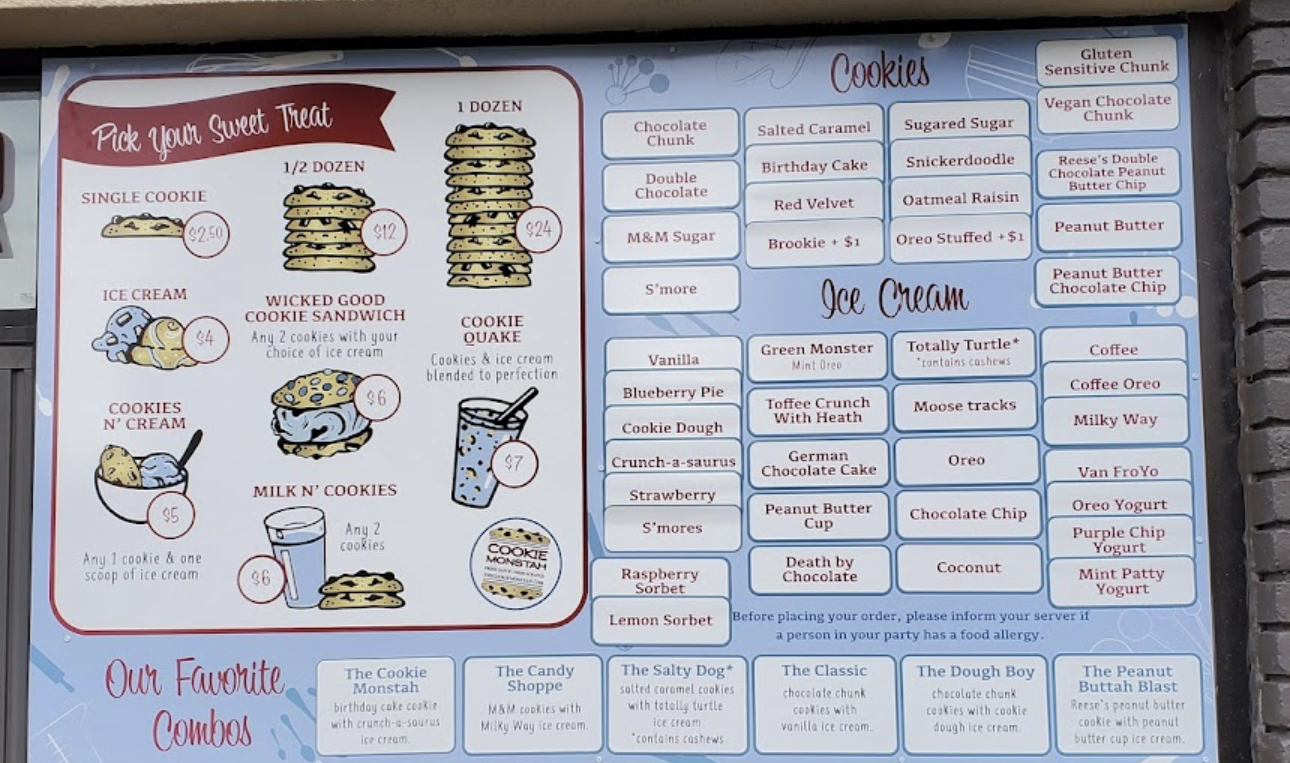 Pick Your Sweet Treat
SINGLE COOKIE
$2.50
1/2 DOZEN
$12
1 DOZEN
$24
ICE CREAM
$4
WICKED GOOD
COOKIE SANDWICH
Any 2 cookies with your
choice of ice cream
$6
COOKIE
QUAKE
Cookies & ice cream
blended to perfection
$7
COOKIES
N' CREAM
$5
Any 1 cookie & one
scoop of ice cream
MILK N' COOKIES
Any 2
cookies
$6
COOKIE
MONSTAH
Cookies
Chocolate
Chunk
Double
Chocolate
M&M Sugar
S'more
Salted Caramel
Birthday Cake
Red Velvet
Brookie + $1
Sugared Sugar
Snickerdoodle
Oatmeal Raisin
Oreo Stuffed +$1
Gluten
Sensitive Chunk
Vegan Chocolate
Chunk
Reese's Double
Chocolate Peanut
Butter Chip
Peanut Butter
Peanut Butter
Chocolate Chip
Ice Cream
Vanilla
Blueberry Pie
Cookie Dough
Crunch-a-saurus
Strawberry
S'mores
Raspberry
Sorbet
Lemon Sorbet
Green Monster
Mint Oreo
Toffee Crunch
With Heath
German
Chocolate Cake
Peanut Butter
Cup
Death by
Chocolate
Totally Turtle*
*contains cashews
Moose tracks
Oreo
Chocolate Chip
Coconut
Coffee
Coffee Oreo
Milky Way
Van FroYo
Oreo Yogurt
Purple Chip
Yogurt
Mint Patty
Yogurt
Before placing your order, please inform your server if
a person in your party has a food allergy.
Our Favorite
Combos
The Cookie
Monstah
birthday cake cookie
with crunch-a-saurus
ice cream.
The Candy
Shoppe
M&M cookies with
Milky Way ice cream.
The Salty Dog*
salted caramel cookies
with totally turtle
ice cream
*contains cashews
The Classic
chocolate chunk
cookies with
vanilla ice cream.
The Dough Boy
chocolate chunk
cookies with cookie
dough ice cream.
The Peanut
Buttah Blast
Reese's peanut butter
cookie with peanut
butter cup ice cream.